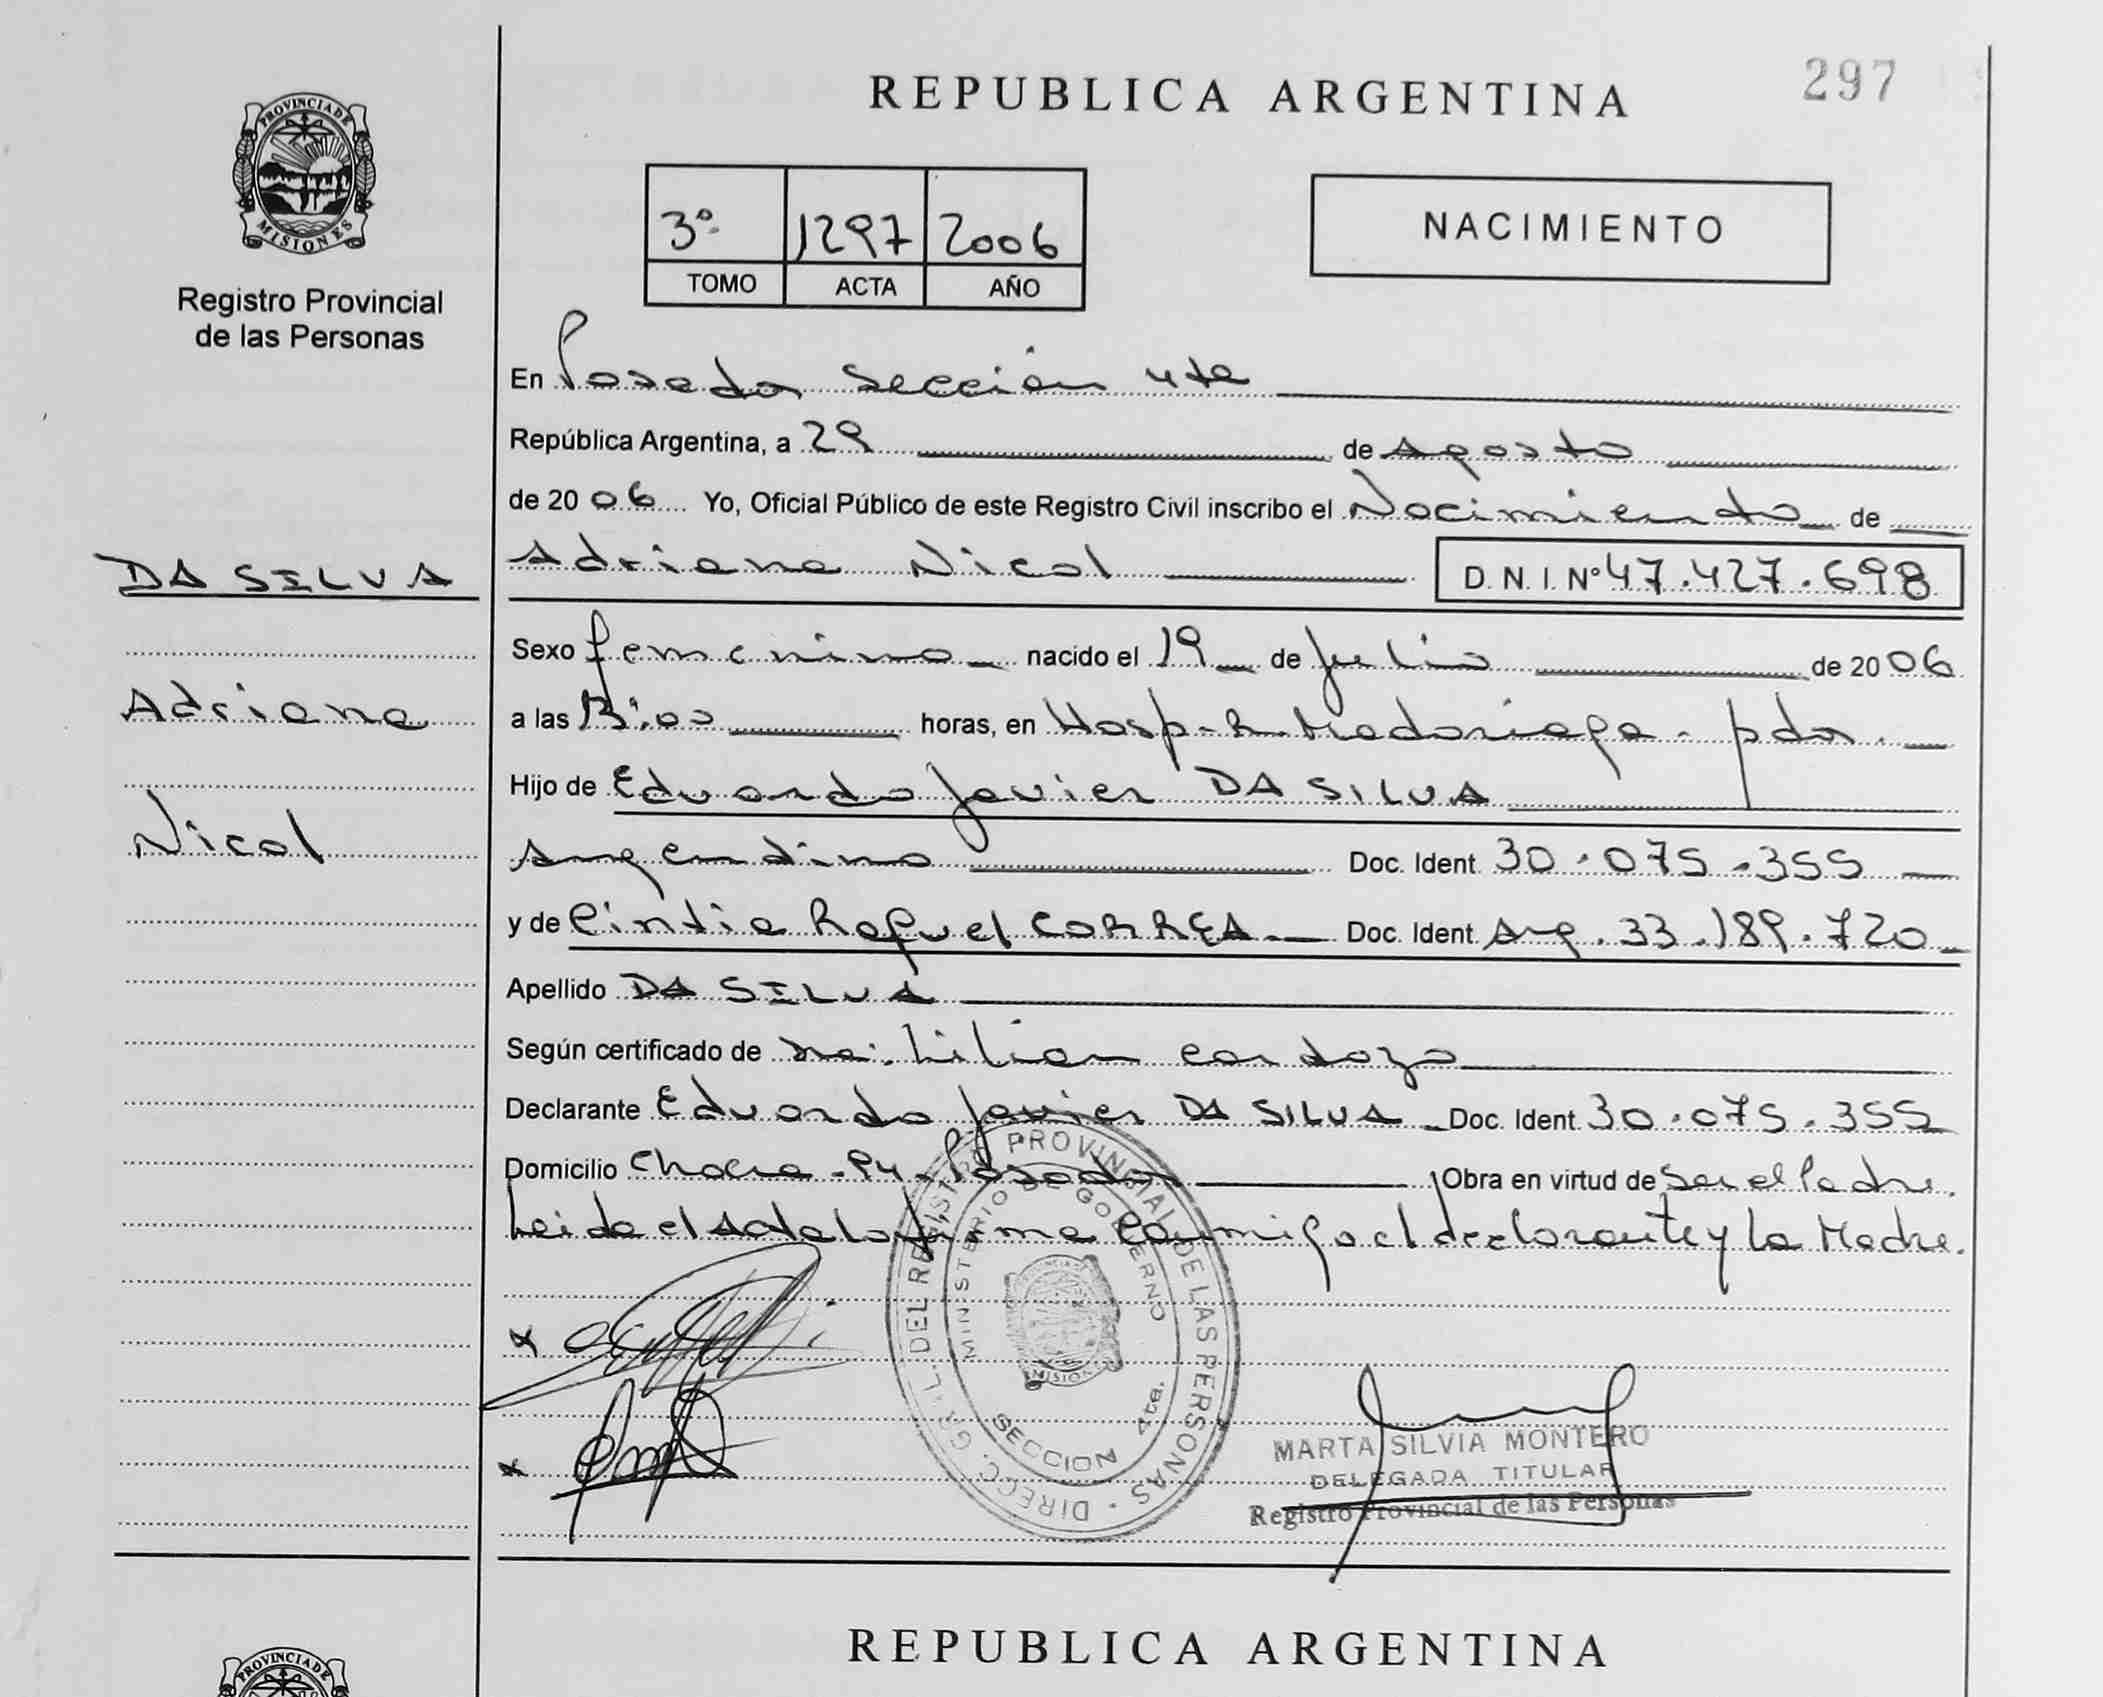 297
REPUBLICA ARGENTINA
PROVINCIA DE
MISIONES
Registro Provincial
de las Personas
3º 1297 2006
TOMO ACTA AÑO
NACIMIENTO
En Posadas Sección 4ta
República Argentina, a 29 de Agosto
de 2006 Yo, Oficial Público de este Registro Civil inscribo el Nacimiento de
DA SILVA
Adriana Nicol D.N.I. Nº 47.427.698
Sexo femenino nacido el 19 de Julio de 2006
Adriana
a las horas, en Hosp. R. Madariaga - pdas.
Hijo de Eduardo Javier DA SILVA
Nicol
Argentino Doc. Ident. 30.075.355
y de Cintia Raquel CORREA Doc. Ident. Arg. 33.189.720
Apellido DA SILVA
Según certificado de Lilian Cardozo
Declarante Eduardo Javier DA SILVA Doc. Ident. 30.075.355
Domicilio Chacra Posadas Obra en virtud de Ser el Padre.
Leida el acta la firma conmigo el declarante y la Madre.
DIRECC. GRAL. DEL REGISTRO PROVINCIAL DE LAS PERSONAS
MINISTERIO DE GOBIERNO
SECCION 4ta.
MARTA SILVIA MONTERO
DELEGADA TITULAR
Registro Provincial de las Personas
REPUBLICA ARGENTINA
PROVINCIA DE